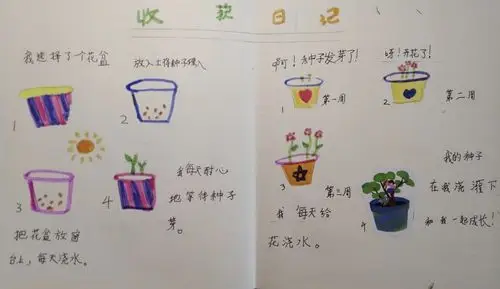 收获日记
我选择了个花盆
放入土将种子埋入
1
2
3
4
我每天耐心
地等待种子
芽。
把花盆放窗
台上,每天浇水。
啊!种子发芽了!
呀!开花了!
1
第一周
2
第二周
3
第三周
我每天给
花浇水。
4
我的种子
在我浇灌下
和我一起成长!